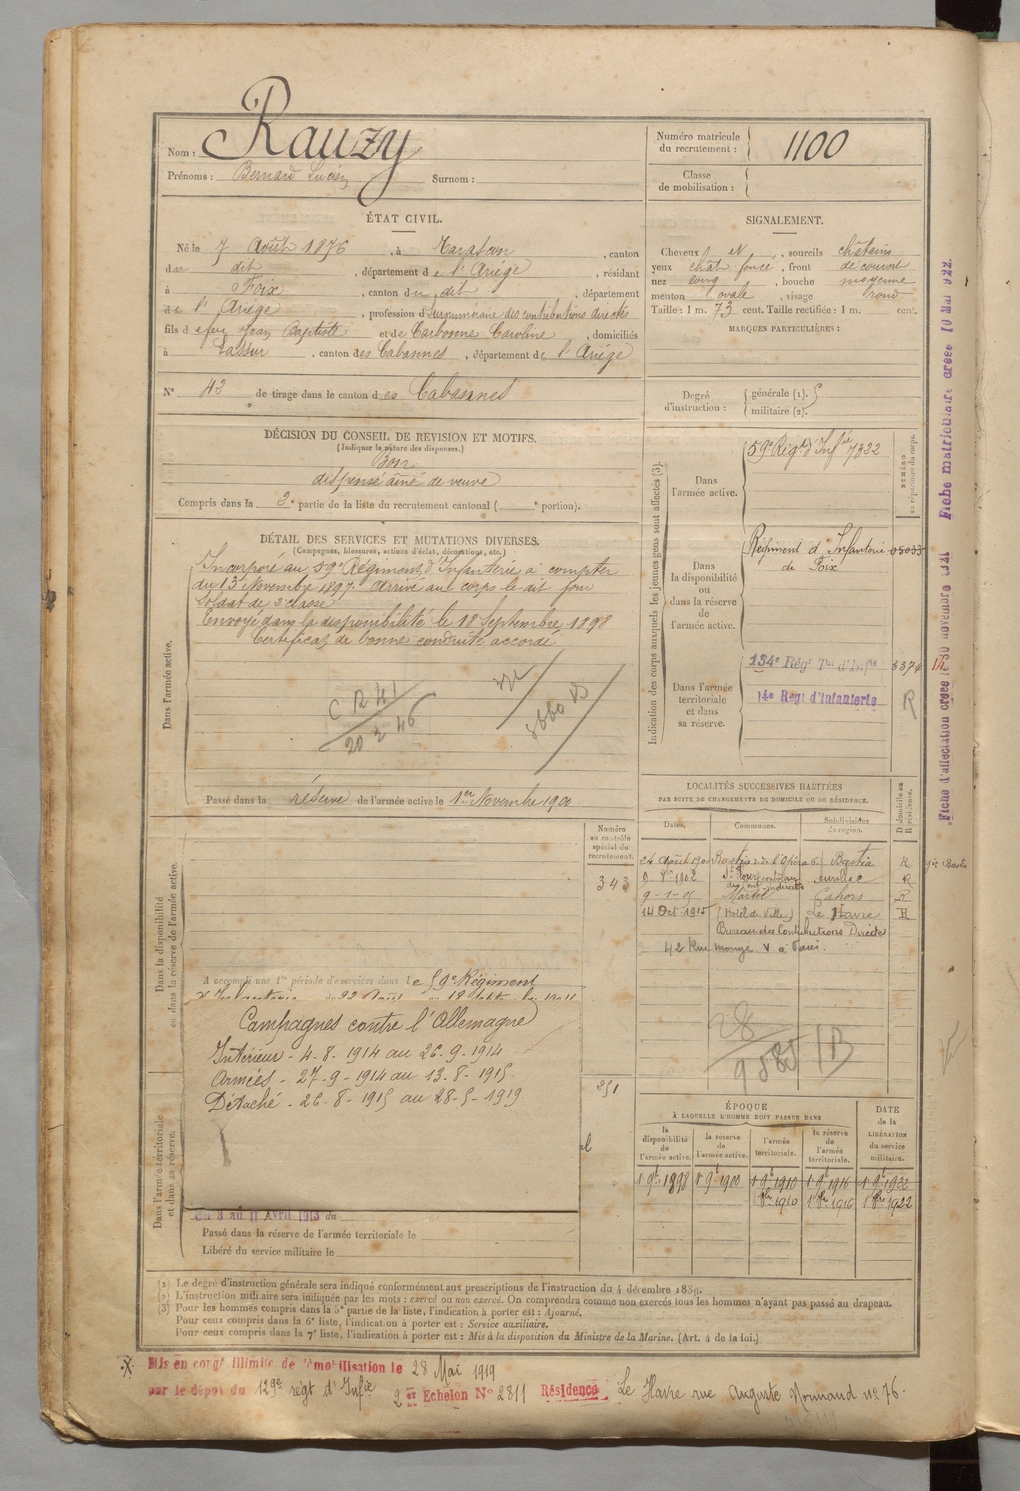 Nom : Rauzy
Prénoms : Bernard Lucien Surnom :
Numéro matricule du recrutement : 1100
Classe de mobilisation :
ÉTAT CIVIL.
Né le 7 Août 1876, à Tarascon, canton
du dit, département de l'Ariège, résidant
à Foix, canton du dit, département
de l'Ariège, profession d Surnuméraire des contributions directes
fils de feu Jean Baptiste et de Carbonne Caroline, domiciliés
à Lassur, canton des Cabannes, département de l'Ariège
N° 42 de tirage dans le canton des Cabannes
SIGNALEMENT.
Cheveux et, sourcils châtains
yeux chât foncé, front découvert
nez long, bouche moyenne
menton ovale, visage rond
Taille : 1 m. 73 cent. Taille rectifiée : 1 m. cent.
MARQUES PARTICULIÈRES :
Degré d'instruction : générale (1).
militaire (2).
DÉCISION DU CONSEIL DE REVISION ET MOTIFS.
(Indiquer la nature des dispenses.)
Bon
dispensé aîné de veuve
Compris dans la 2e partie de la liste du recrutement cantonal ( e portion).
DÉTAIL DES SERVICES ET MUTATIONS DIVERSES.
(Campagnes, blessures, actions d'éclat, décorations, etc.)
Dans l'armée active.
Incorporé au 59e Régiment d'Infanterie à compter
du 13 Novembre 1897. Arrivé au corps le dit jour
Soldat de 2e classe
Envoyé dans la disponibilité le 18 Septembre 1898
Certificat de bonne conduite accordé
C R 41
20 2 46
Passé dans la réserve de l'armée active le 1er Novembre 1900
Indication des corps auxquels les jeunes gens sont affectés (3).
Dans l'armée active.
59e Régt d'Infie 7332
NUMÉRO au répertoire du corps.
Dans la disponibilité ou dans la réserve de l'armée active.
Régiment d'Infanterie 05033
de Foix
Dans l'armée territoriale et dans sa réserve.
134e Régt Tal d'Infie
14e Regt d'Infanterie
R
LOCALITÉS SUCCESSIVES HABITÉES
PAR SUITE DE CHANGEMENTS DE DOMICILE OU DE RÉSIDENCE.
Dates. Communes. Subdivisions de région. D domicile ou R résidence.
24 Août 190 Bastia r. de l'Opéra 6. Bastia R
1902 St Flour contrôleur des Cont. indirectes Aurillac R
9-1-05 Martel Cahors
14 Oct 1915 (Hôtel de Ville) Le Havre R
Bureau des Contributions Directes
42 Rue Monge V à Paris.
28
Numéro au contrôle spécial du recrutement.
343
251
Dans la disponibilité ou dans la réserve de l'armée active.
A accompli une 1re période d'exercices dans le 59e Régiment
Campagnes contre l'Allemagne
Intérieur - 4-8-1914 au 26-9-1914
Armées - 27-9-1914 au 13-8-1915
Détaché - 26-8-1915 au 28-5-1919
Dans l'armée territoriale et dans sa réserve.
du 3 au 11 Avril 1913 du
Passé dans la réserve de l'armée territoriale le
Libéré du service militaire le
ÉPOQUE
À LAQUELLE L'HOMME DOIT PASSER DANS
la disponibilité de l'armée active. la réserve de l'armée active. l'armée territoriale. la réserve de l'armée territoriale. DATE de la LIBÉRATION du service militaire.
1 9bre 1898 1 9bre 1900 1 9bre 1910 1 9bre 1916 1 9bre 1922
1 8bre 1910 1 8bre 1916 1 8bre 1922
(1) Le degré d'instruction générale sera indiqué conformément aux prescriptions de l'instruction du 4 décembre 1889.
(2) L'instruction militaire sera indiquée par les mots : exercé ou non exercé. On comprendra comme non exercés tous les hommes n'ayant pas passé au drapeau.
(3) Pour les hommes compris dans la 5e partie de la liste, l'indication à porter est : Ajourné.
Pour ceux compris dans la 6e liste, l'indication à porter est : Service auxiliaire.
Pour ceux compris dans la 7e liste, l'indication à porter est : Mis à la disposition du Ministre de la Marine. (Art. 4 de la loi.)
Mis en congé illimité de démobilisation le 28 Mai 1919
par le dépôt du 129e régt d'Infie 2er Echelon N° 2811 Résidence Le Havre rue Auguste Normand no 76.
Fiche d'affectation créée le 30 novembre Fiche matriculaire créée 10 Mai 922.